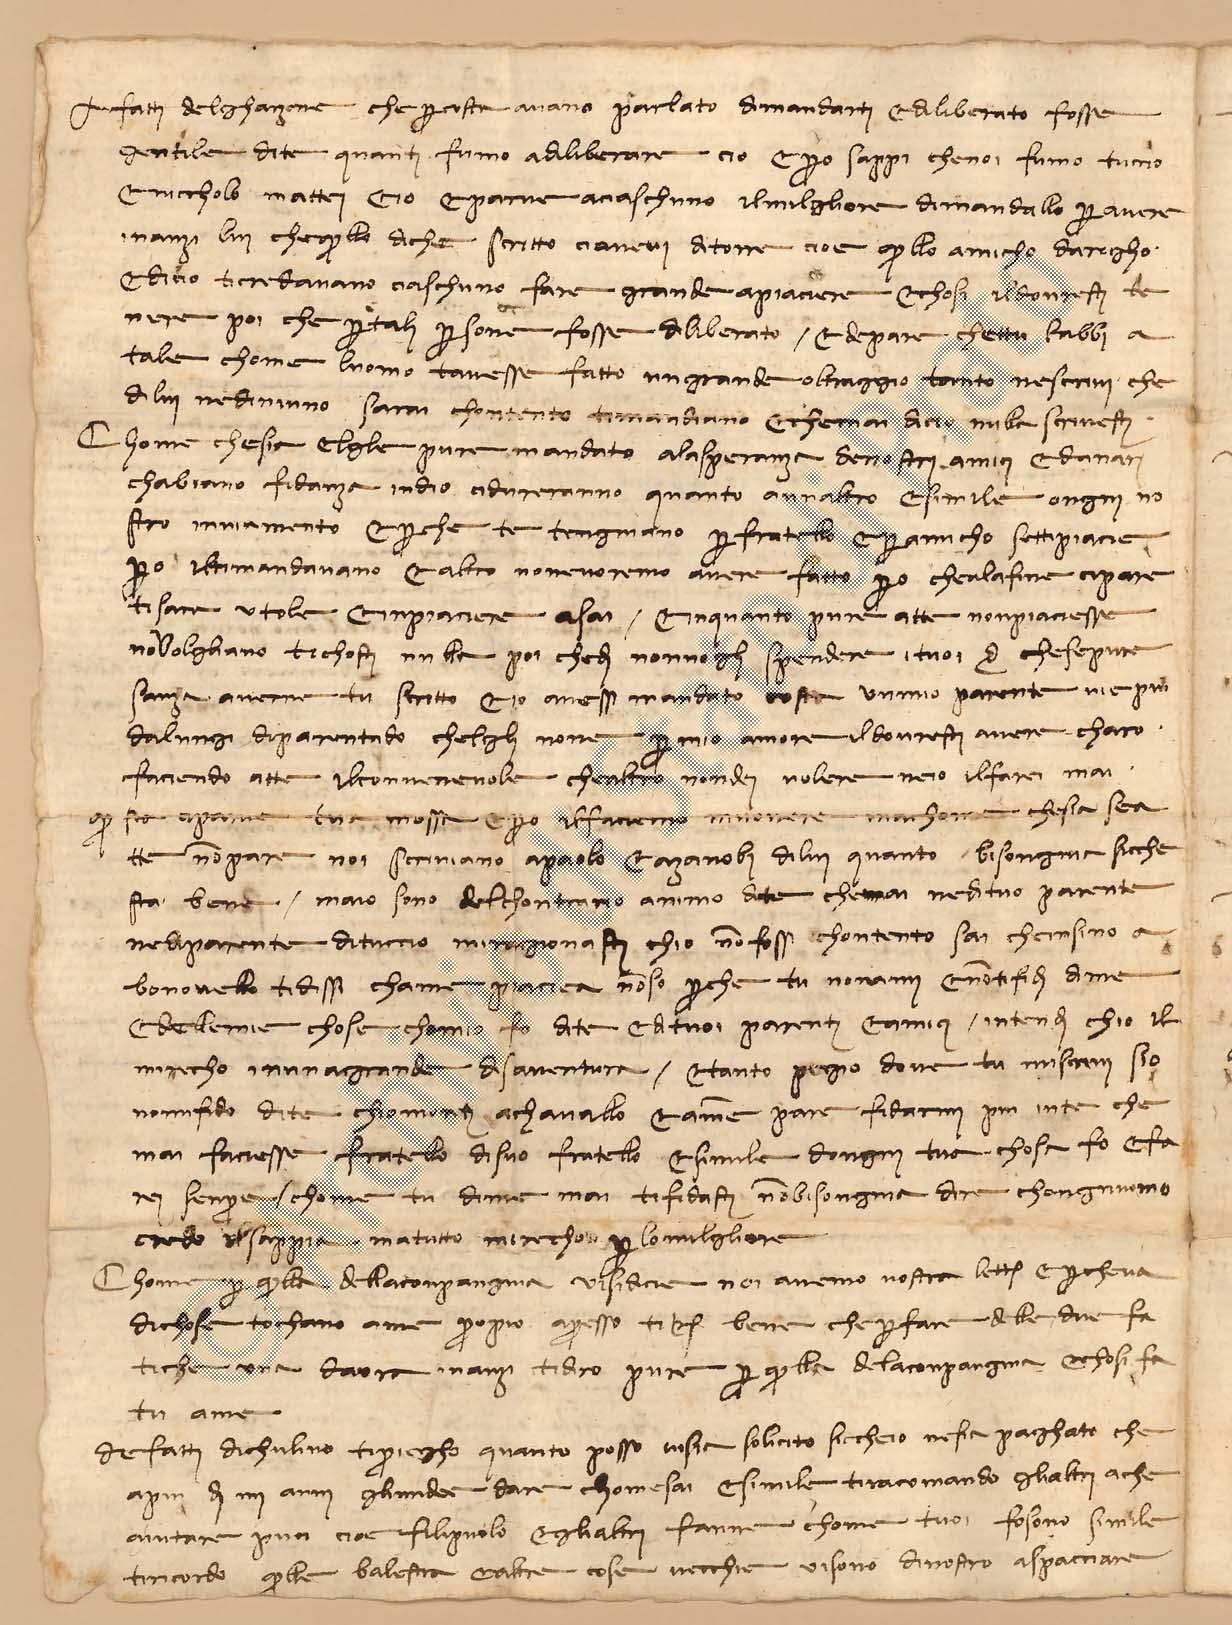 I fatti delghazone che per costa avano parlato dimandarti e diliberato fosse
gentile dite quanti fumo adiliberare cio e però sappi chenoi fumo tuccio
e niccholo mattei e io e parve aciaschuno ilmilgliore dimandallo per avere
inanzi lui chequello diche scritto ciavevi ditorre cioe quello amicho darigho
e dicio ticredavano ciaschuno fare grande apiaciere e chosi ildovresti te
nere poi che per tali persone fosse diliberato / e depare chettu labbi a
tale chome luomo tavesse fatto un grande oltraggio tanto nescrivi che
dilui nediniuno sarai chontento timandiano e chemai dicio nulla scrivesti
Chome chesia elgle pure mandato alasperanza denostri amici e danari
chabiano fidanza indio cidureranno quanto annaltro e simile ongni no
stro inviamento e perche te tengniano per fratello e per amicho settipiacie
però iltimandavano e altro nonevoremo avere fatto però chealafine cipare
tisara utole e inpiaciere asai / e inquanto pure atte nonpiaciesse
novolgliano tichosti nulla poi chedi nonvogli spendere ituoi d chesepure
sanza averne tu scritto e io avessi mandato costa unmio parente viepiu
dalungi diparentado chelgli none per mio amore ildovresti avere charo
faciendo atte ilconvenevole chealtro nondei volere neio ilfarei mai
questo ciparve tua mossa e però ilfaciemo muovere machome chesia sea
tte nonpare noi scriviano apaolo e azanobi dilui quanto bisongnia sicche
sta bene / maio sono delchontrario animo dite chemai nedituo parente
nediparente dituccio miragionasti chio nonfossi chontento sai cheinsino a
bonovello tidissi chame piaciea nonso perche tu nonami e nontifidi dime
e dellemie chose chomio fo dite e dituoi parenti e amici / intendi chio il
mirecho inunagrande disaventura / e tanto pegio dove tu miscrivi sio
nomifido dite chiomonti achavallo e ame pare fidarmi piu inte che
mai faciesse fratello disuo fratello e simile dongni tua chosa fo e fa
rei senpre / chome tu dime mai tifidasti nonbisongnia dire chongniuomo
credo ilsappia matutto mirecho per lomilgliore
Chome per quella dellaconpangnia visidicie noi avemo vostra lettera e percheva
dichose tochano ame propio apresso tirispondo bene che per fare delle due fa
tiche una daora inanzi tidiro pure per quella delaconpangnia e chosi fa
tu ame
De fatti dichulino tipriegho quanto posso visia solicito siccheio nesia paghato che
apiu di iiii anni glimidee dare chomesai e simile tiracomando glialtri ache
aiutare puoi cioe filipuolo e glialtri fanne chome tuoi fosono simile
tiricordo quelle balestra e altre cose vecchie visono dinostro aspacciare